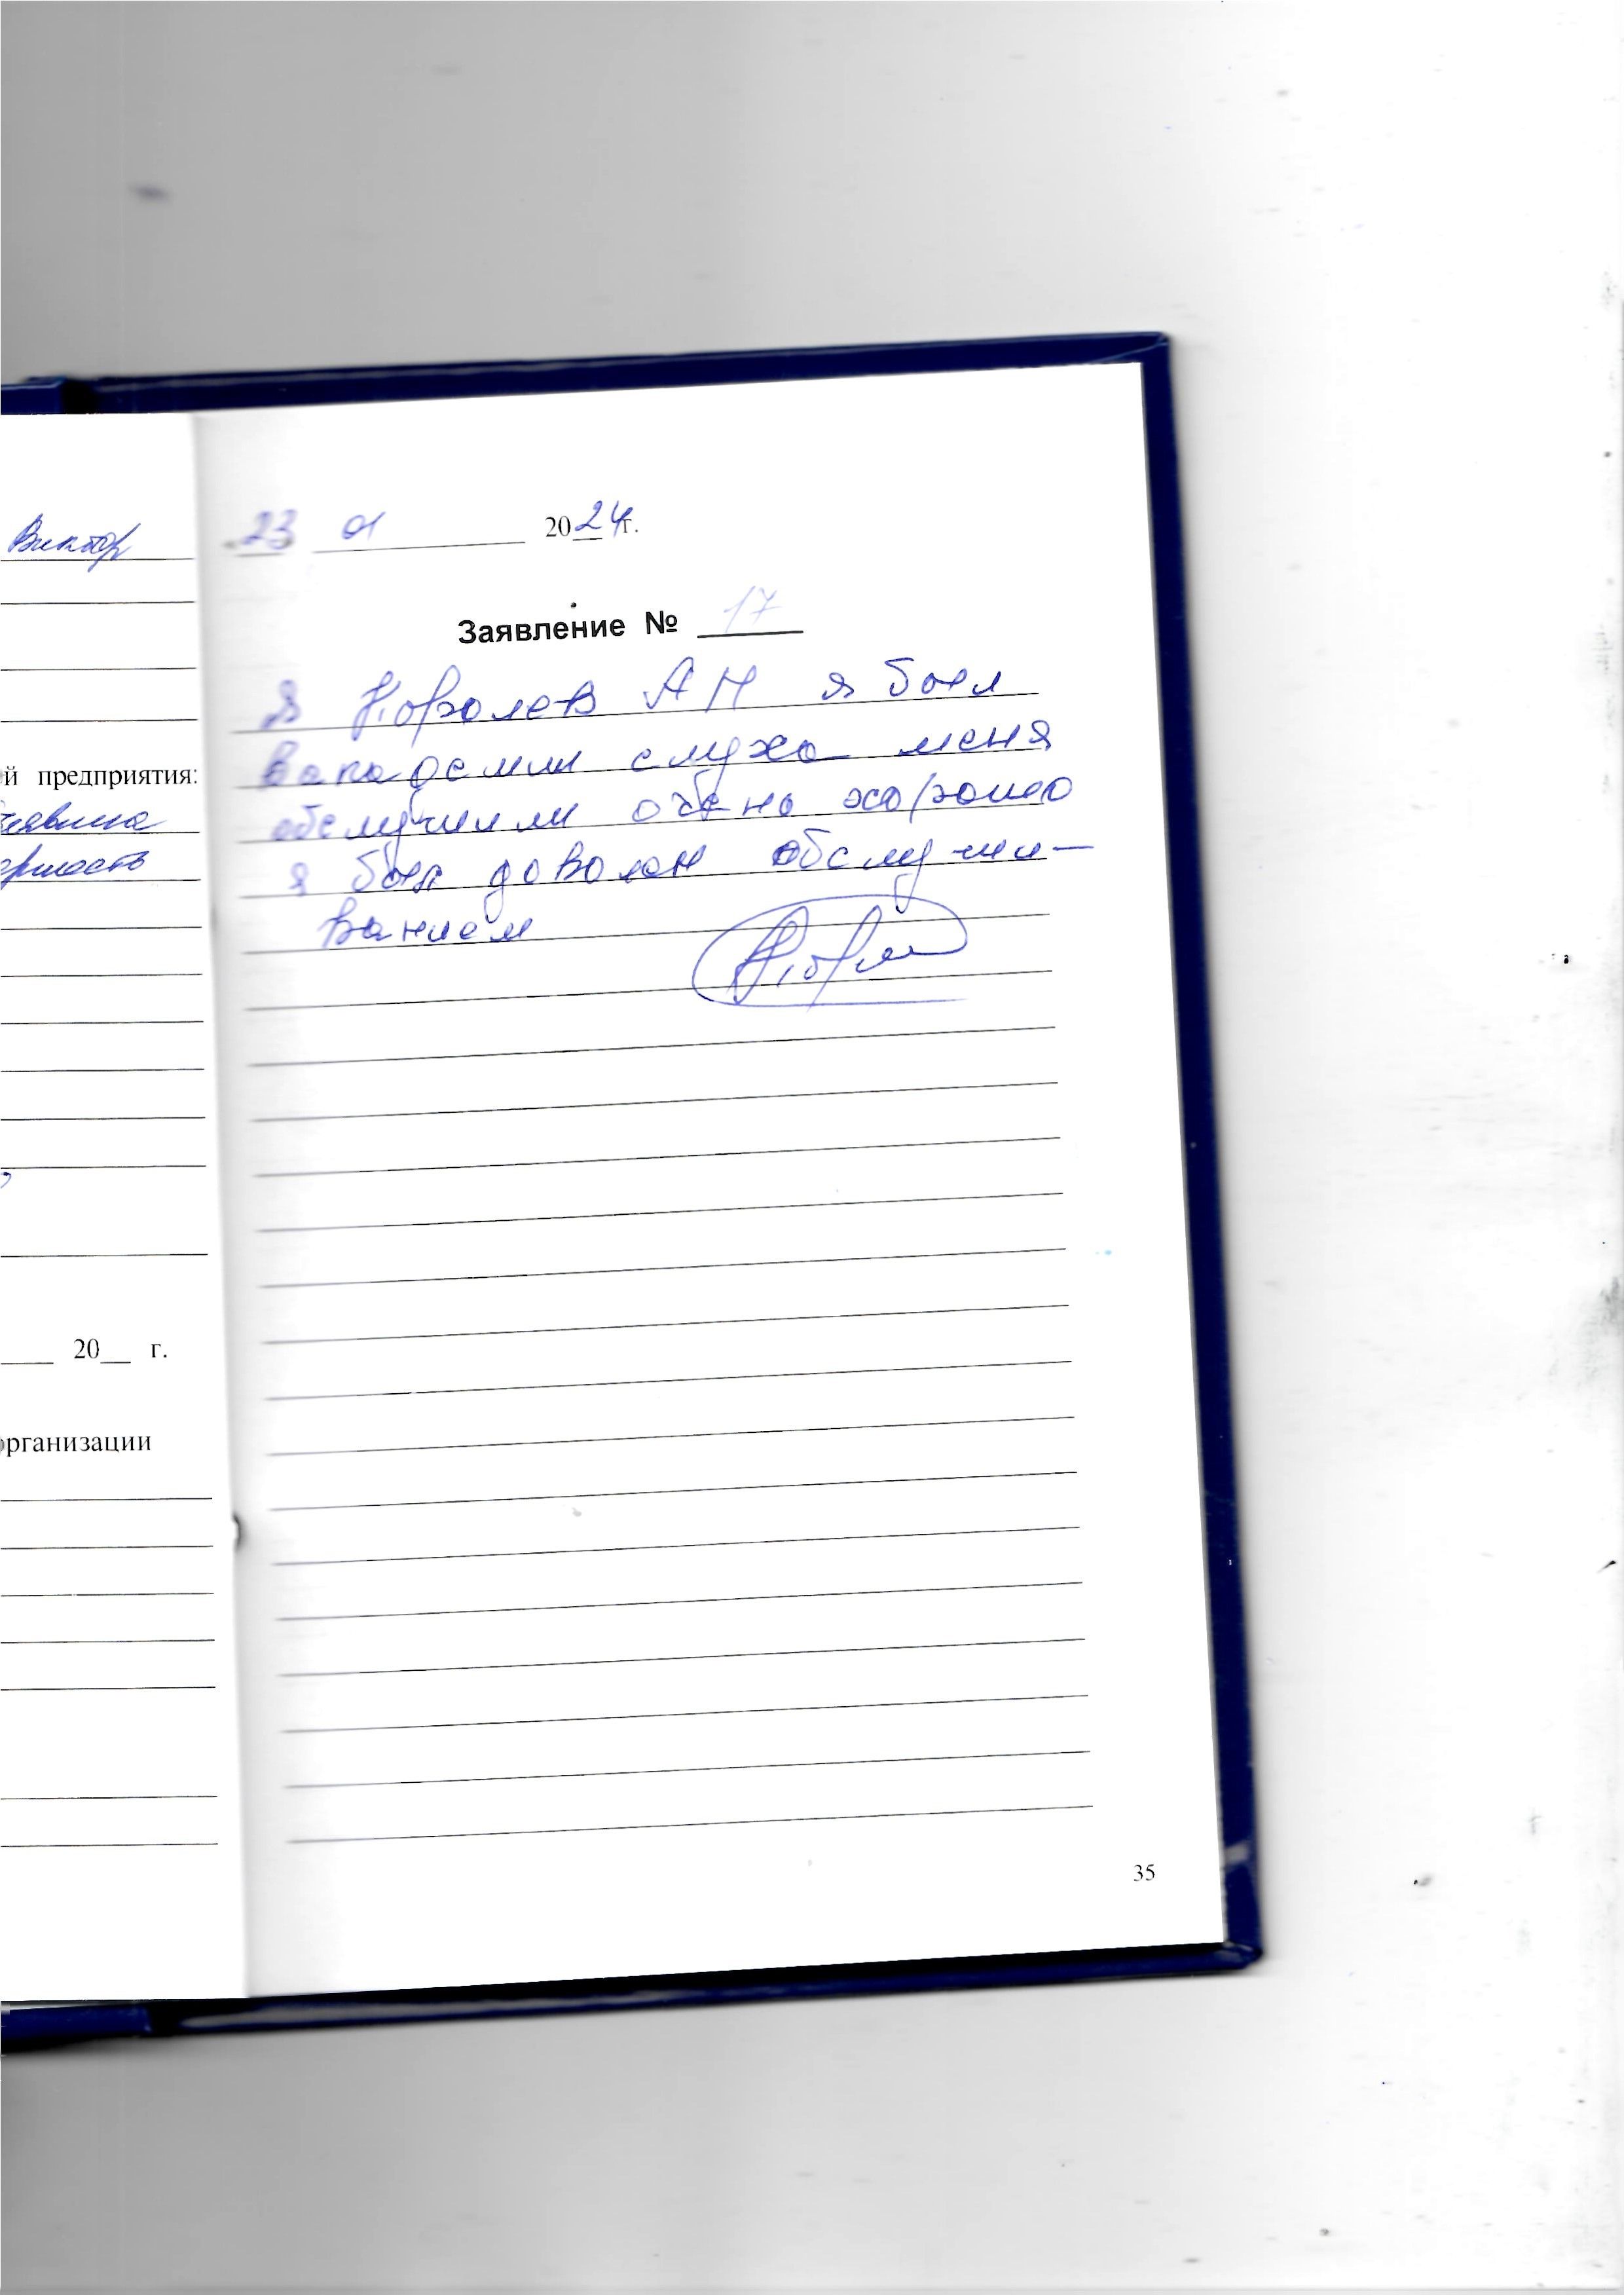 Виктор
й предприятия:
20__ г.
организации
23 01 2024г.
Заявление № 17
Я Королев АН я был
в академии слуха меня
обслужили очень хорошо
я был доволен обслужи-
ванием
35